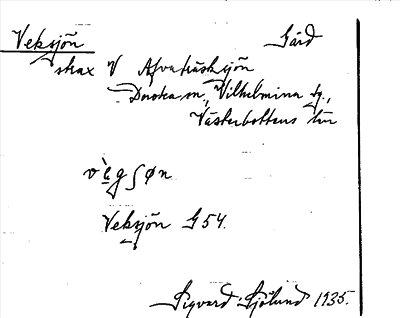 Veksjön Gård
strax V Afvaträsksjön
Dorotea sn., Vilhelmina tg.,
Västerbottens län
vè̱gʃøn
Veksjön G 54.
Sigvard Sjölund 1935.